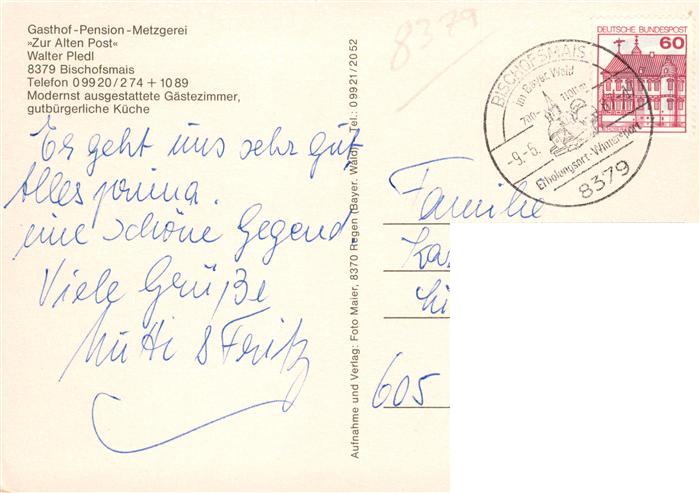 Gasthof-Pension-Metzgerei
»Zur Alten Post«
Walter Pledl
8379 Bischofsmais
Telefon 09920/274 + 1089
Modernst ausgestattete Gästezimmer,
gutbürgerliche Küche
Es geht uns sehr gut,
Alles prima.
eine schöne Gegend.
Viele Grüße
Mutti & Fritz
Aufnahme und Verlag: Foto Maier, 8370 Regen (Bayer. Wald), Tel.: 09921/2052
8379
DEUTSCHE BUNDESPOST
60
BISCHOFSMAIS
im Bayer. Wald
700-1100 m
-9.-5.
Erholungsort-Wintersport
8379
Familie
605